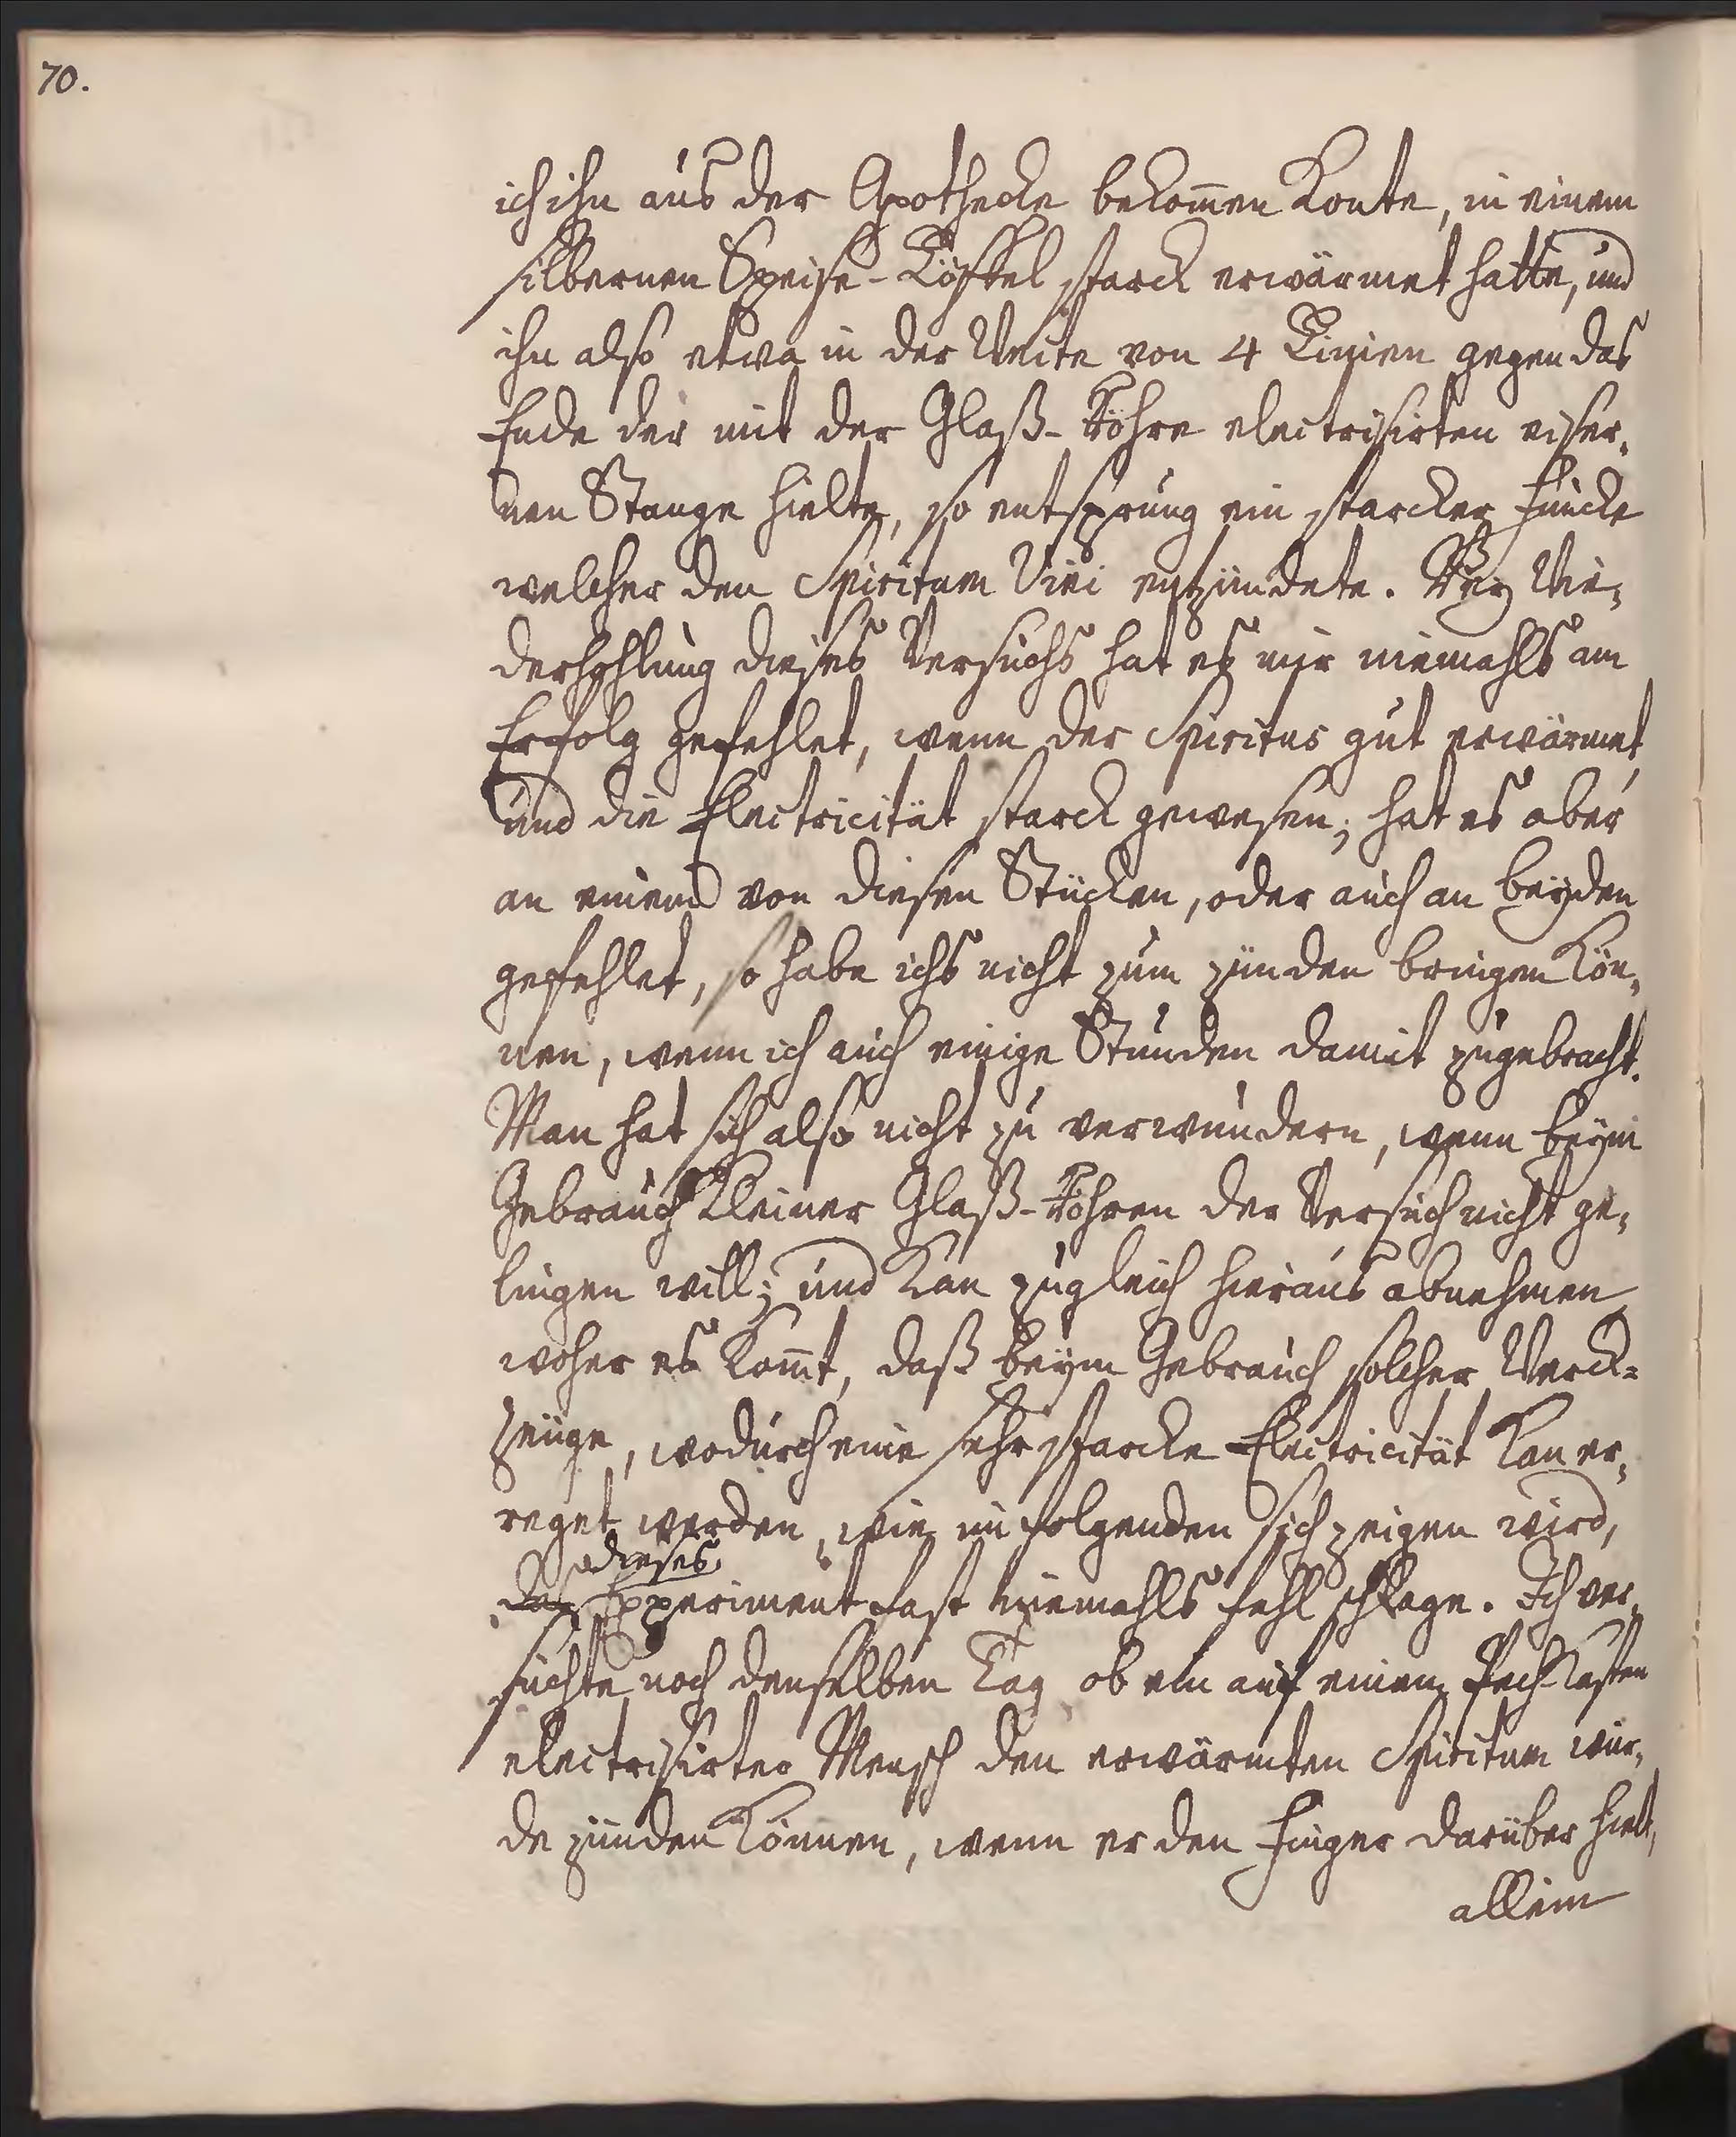 70.
ich ihn aus der Apothecke bekom̄en konte, in einem
silbernen Speise-Löffel starck erwärmet hatte, und
ihn also etwa in der Weite von 4 Linien gegen das
Ende der mit der Glaß-Röhre electrisirten eiser„
nen Stange hielte, so entsprung ein starcker Funcke
welcher den Spiritum Vini entzündete. Bey Wie„
derhohlung dieses Versuchs hat es mir niemahls am
Erfolg gefehlet, wenn der Spiritus gut erwärmet,
und die Electricität starck gewesen; hat es aber
an einem von diesen Stücken, oder auch an beyden
gefehlet, so habe ichs nicht zum zünden bringen kön„
nen, wenn ich auch einige Stunden damit zugebracht.
Man hat sich also nicht zu verwundern, wenn beym
Gebrauch kleiner Glaß-Röhren der Versuch nicht ge„
lingen will; und kan zugleich hieraus abnehmen
woher es kom̄t, daß beym Gebrauch solcher Werck=
zeuge, wodurch eine sehr starcke Electricität kan er„
reget werden, wie im folgenden sich zeigen wird,
dieses
das Experiment fast niemahls fehl schlage. Ich ver„
suchte noch denselben Tag ob ein auf einem Pech-Kasten
electrisirter Mensch den erwärmten Spiritum wür„
de zünden können, wenn er den Finger darüber hielt,
allein